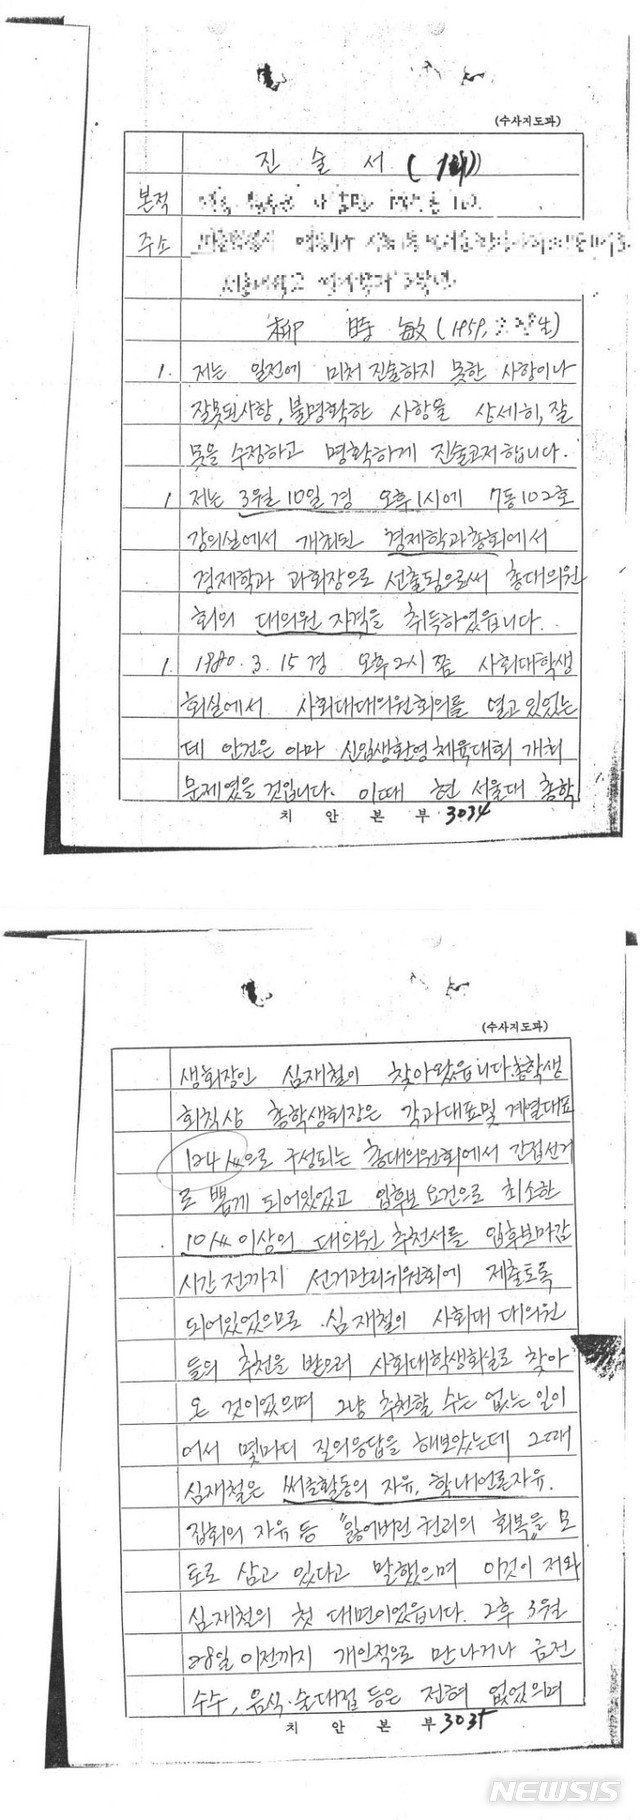 (수사지도과)
진 술 서
본적
주소
柳 時 敏 (1959,
1. 저는 일전에 미처 진술하지 못한 사항이나
잘못된사항, 불명확한 사항을 상세히, 잘
못을 수정하고 명확하게 진술코저합니다.
1 저는 3월 10일 경 오후1시에 7동102호
강의실에서 개최된 경제학과총회에서
경제학과 과회장으로 선출됨으로써 총대의원
회의 대의원 자격을 취득하였읍니다.
1. 1980.3.15경 오후2시쯤 사회대학생
회실에서 사회대대의원회의를 열고있었는
데 안건은 아마 신입생환영체육대회 개최
문제였을 것입니다. 이때 현 서울대 총학
치 안 본 부 3034
(수사지도과)
생회장인 심재철이 찾아왔읍니다.총학생
회칙상 총학생회장은 각과대표및 계열대표
124 으로 구성되는 총대의원회에서 간접선거
로 뽑게 되어있었고 입후보 요건으로 최소한
10 이상의 대의원 추천서를 입후보마감
시간 전까지 선거관리위원회에 제출토록
되어있었으므로 심재철의 사회대 대의원
들의 추천을 받으러 사회대학생회실로 찾아
온 것이었으며 그냥 추천할 수는 없는 일이
어서 몇마디 질의응답을 해보았는데 그때
심재철은 써클활동의 자유, 학내언론자유,
집회의 자유 등 "잃어버린 권리의 회복"을 모
토로 삼고 있다고 말했으며 이것이 저와
심재철의 첫 대면이었읍니다. 그후 3월
28일 이전까지 개인적으로 만나거나 금전
수수, 음식·술대접 등은 전혀 없었으며
치 안 본 부 3035
NEWSIS